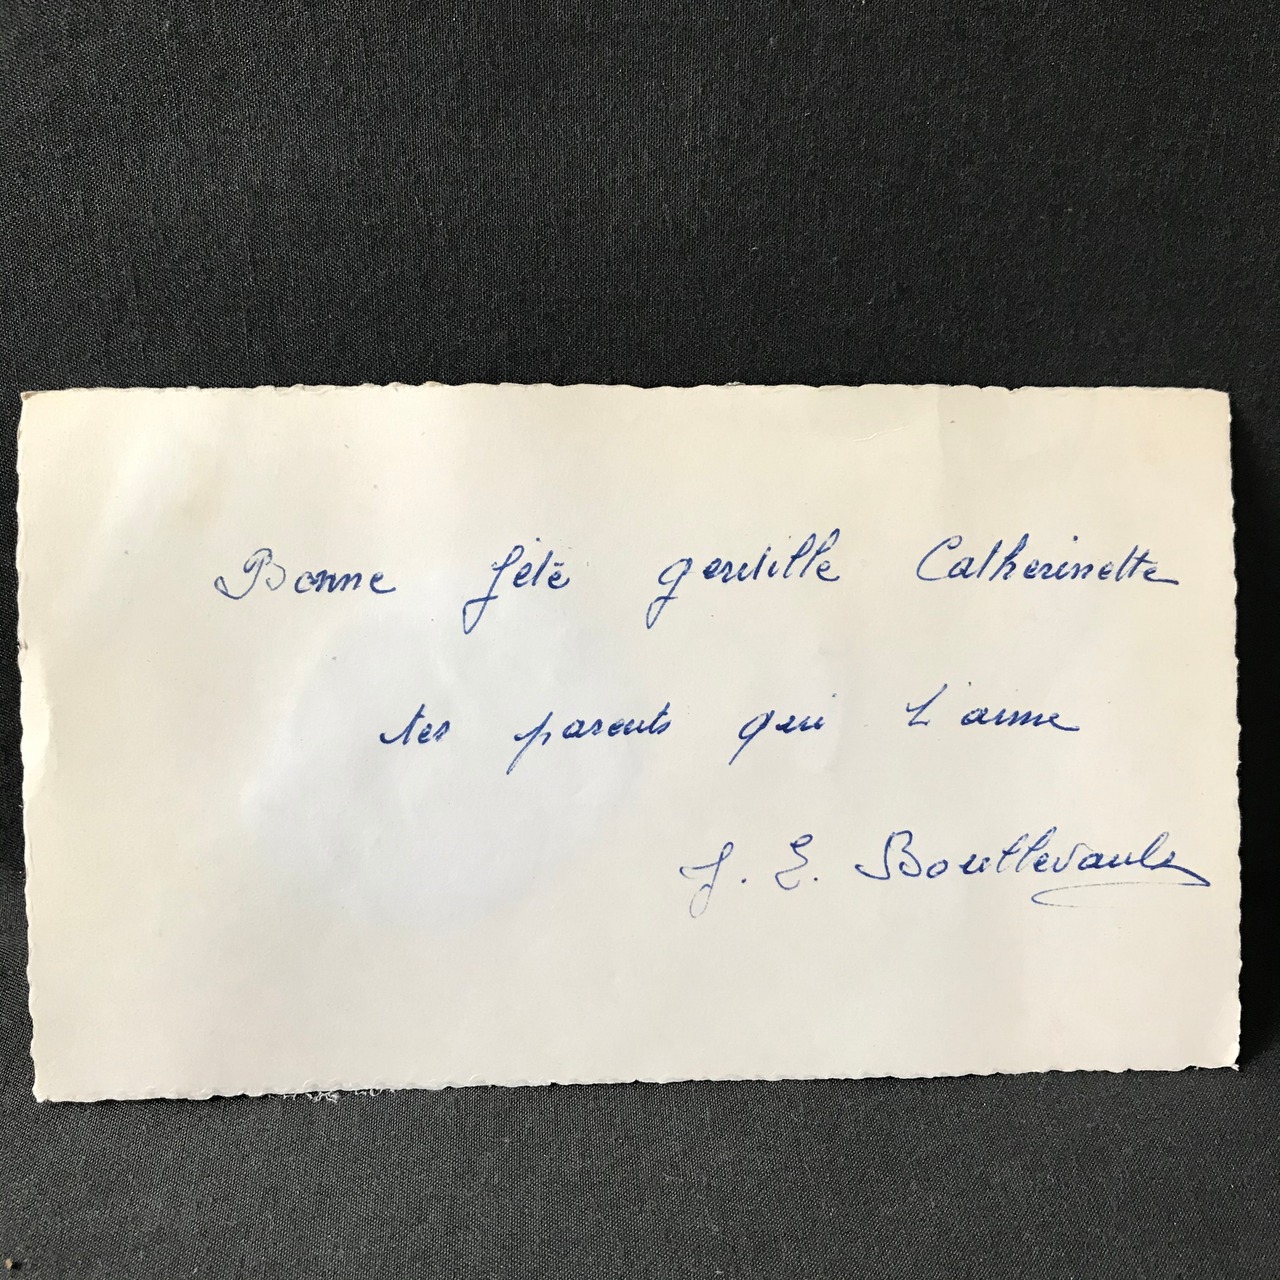 Bonne fête gentille Catherinette
tes parents qui t'aime
J. E. Bouttevault